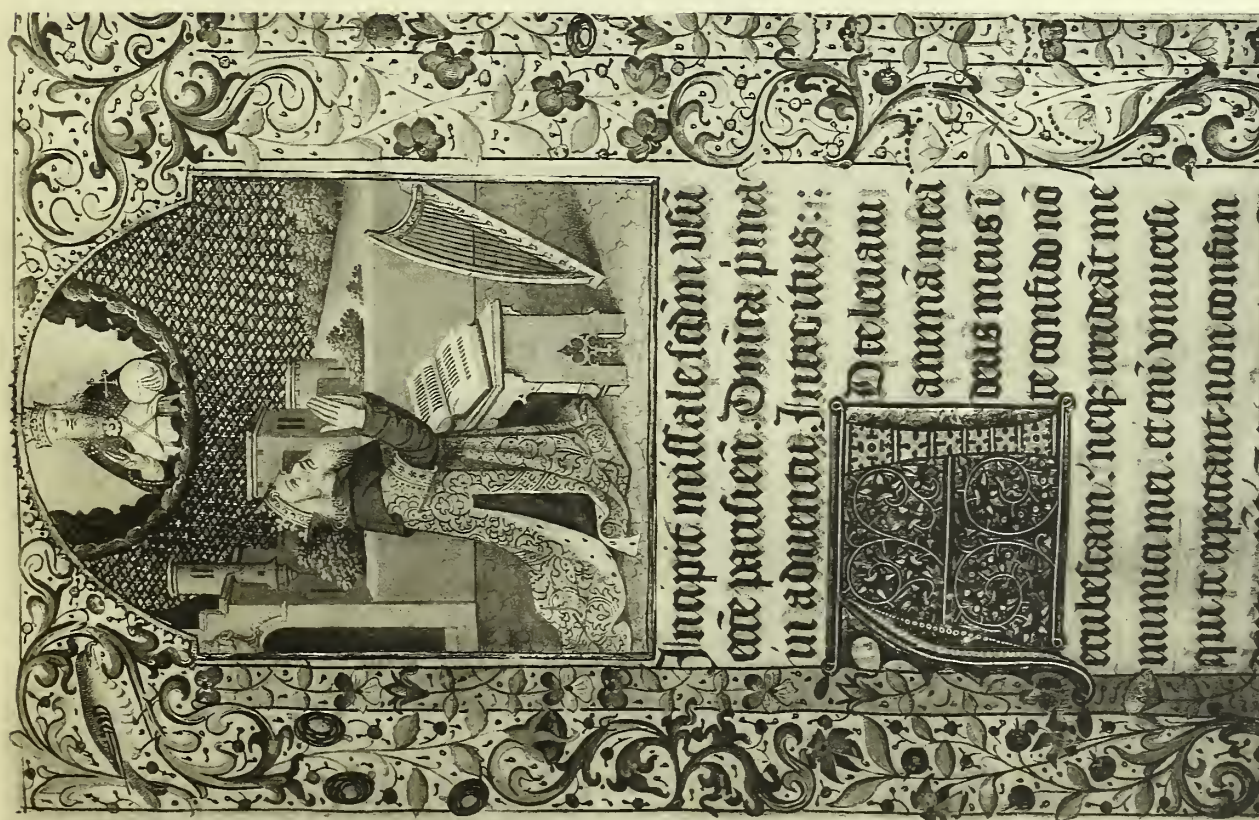 Incipit missale scd̄m vsū
ecctē parisieñ. Dñica pīmā
in aduentu. Introitus:
AD te leuaui
animā meā
deus meus i
te confido nō
erubescam: neqꝫ irrideāt me
inimici mei. eteni vniuersi
qui te expectant non confun